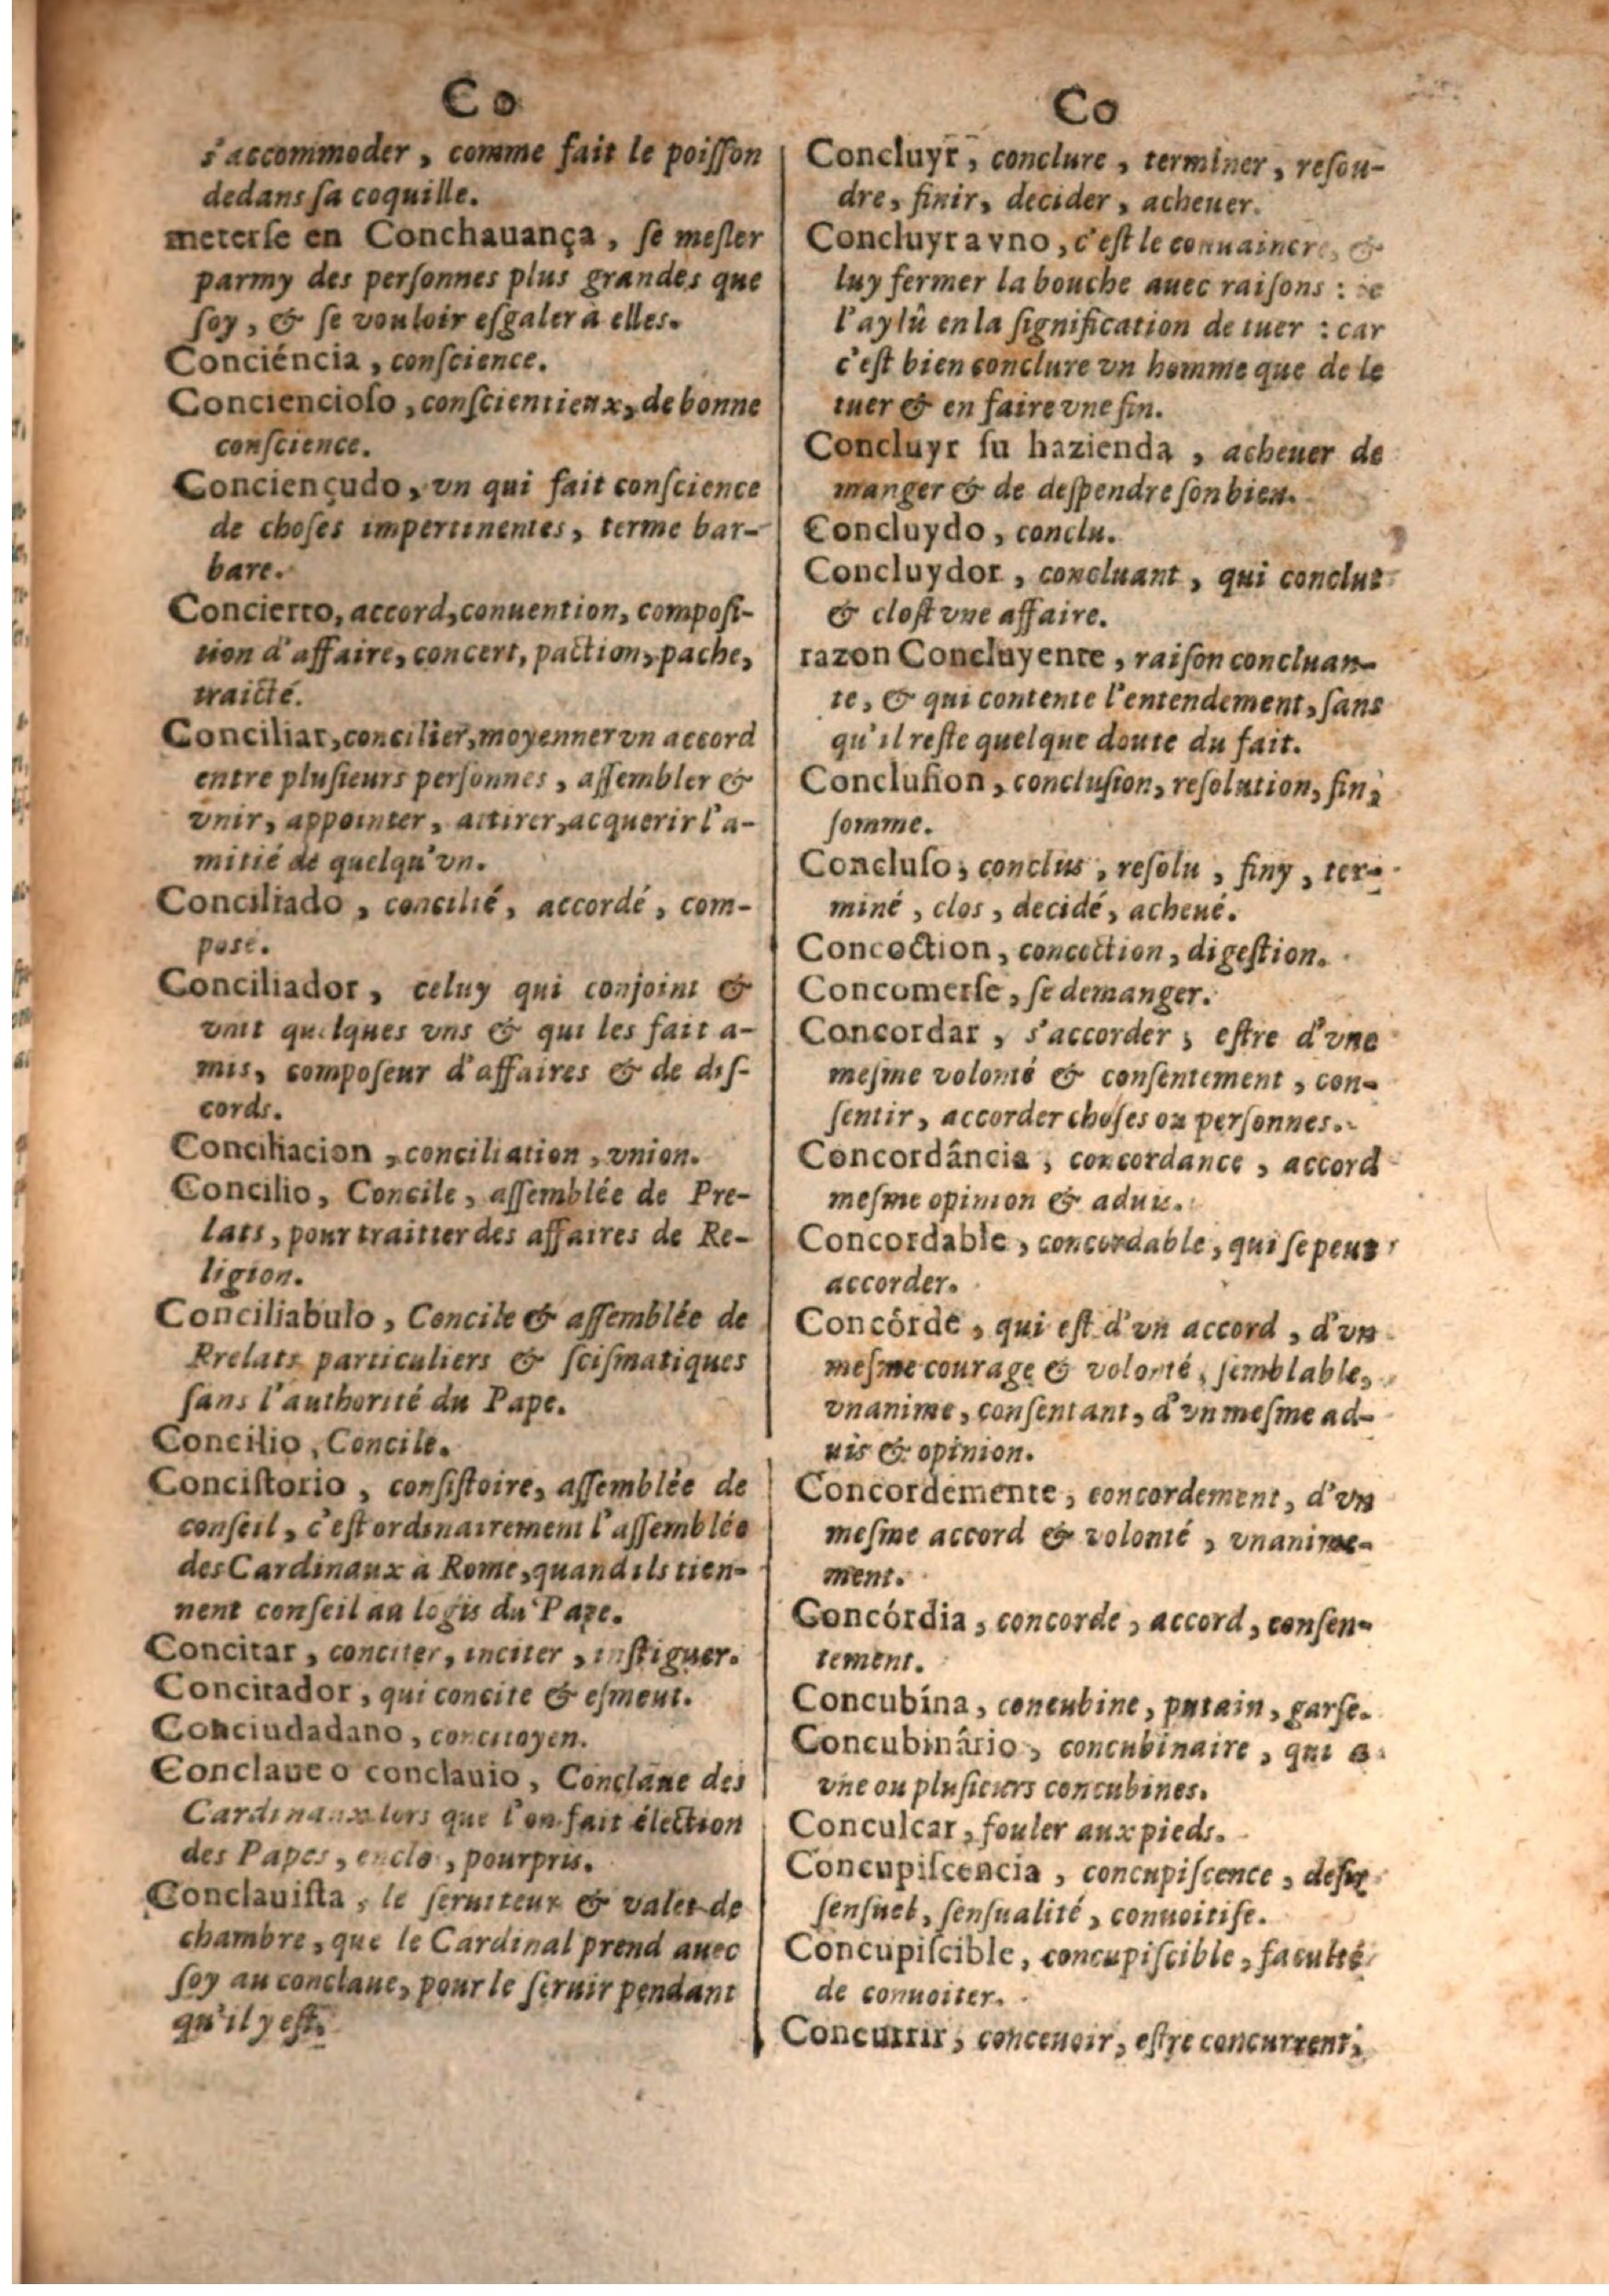 Co
s'accommoder, comme fait le poiſſon
dedans ſa coquille.
meterſe en Conchauança, ſe meſler
parmy des perſonnes plus grandes que
ſoy, & ſe vouloir eſgaler à elles.
Conciéncia, conſcience.
Conciencioſo, conſcientieux, de bonne
conſcience.
Conciençudo, vn qui fait conſcience
de choſes impertinentes, terme bar-
bare.
Concierto, accord, conuention, compoſi-
tion d'affaire, concert, paction, pache,
traicté.
Conciliar, concilier, moyenner vn accord
entre pluſieurs perſonnes, aſſembler &
vnir, appointer, attirer, acquerir l'a-
mitié de quelqu'vn.
Conciliado, concilié, accordé, com-
posé.
Conciliador, celuy qui conjoint &
vnit quelques vns & qui les fait a-
mis, compoſeur d'affaires & de diſ-
cords.
Conciliacion, conciliation, vnion.
Concilio, Concile, aſſemblée de Pre-
lats, pour traitter des affaires de Re-
ligion.
Conciliabulo, Concile & aſſemblée de
Prelats particuliers & ſciſmatiques
ſans l'authorité du Pape.
Concilio, Concile.
Conciſtorio, conſiſtoire, aſſemblée de
conſeil, c'eſt ordinairement l'aſſemblée
des Cardinaux à Rome, quand ils tien-
nent conſeil au logis du Pape.
Concitar, conciter, inciter, inſtiguer.
Concitador, qui concite & eſmeut.
Conciudadano, concitoyen.
Conclaue o conclauio, Conclaue des
Cardinaux lors que l'on fait élection
des Papes, enclos, pourpris.
Conclauiſta, le ſeruiteur & valet de
chambre, que le Cardinal prend auec
ſoy au conclaue, pour le ſeruir pendant
qu'il y eſt.
Co
Concluyr, conclure, terminer, reſou-
dre, finir, decider, acheuer.
Concluyr a vno, c'eſt le conuaincre, &
luy fermer la bouche auec raiſons : je
l'ay lû en la ſignification de tuer : car
c'eſt bien conclure vn homme que de le
tuer & en faire vne fin.
Concluyr ſu hazienda, acheuer de
manger & de deſpendre ſon bien.
Concluydo, conclu.
Concluydor, concluant, qui conclut
& cloſt vne affaire.
razon Concluyente, raiſon concluan-
te, & qui contente l'entendement, ſans
qu'il reſte quelque doute du fait.
Concluſion, concluſion, reſolution, fin,
ſomme.
Concluſo, conclus, reſolu, finy, ter-
miné, clos, decidé, acheué.
Concoction, concoction, digeſtion.
Concomerſe, ſe demanger.
Concordar, s'accorder, eſtre d'vne
meſme volonté & conſentement, con-
ſentir, accorder choſes ou perſonnes.
Concordância, concordance, accord
meſme opinion & aduis.
Concordable, concordable, qui ſe peut
accorder.
Concórde, qui est d'vn accord, d'vn
meſme courage & volonté, ſemblable,
vnanime, conſentant, d'vn meſme ad-
uis & opinion.
Concordemente, concordement, d'vn
meſme accord & volonté, vnanime-
ment.
Concórdia, concorde, accord, conſen-
tement.
Concubína, concubine, putain, garſe.
Concubinário, concubinaire, qui a
vne ou pluſieurs concubines.
Conculcar, fouler aux pieds.
Concupiſcencia, concupiſcence, deſir
ſenſuel, ſenſualité, conuoitiſe.
Concupiſcible, concupiſcible, faculté
de conuoiter.
Concurrir, conceuoir, eſtre concurrent,